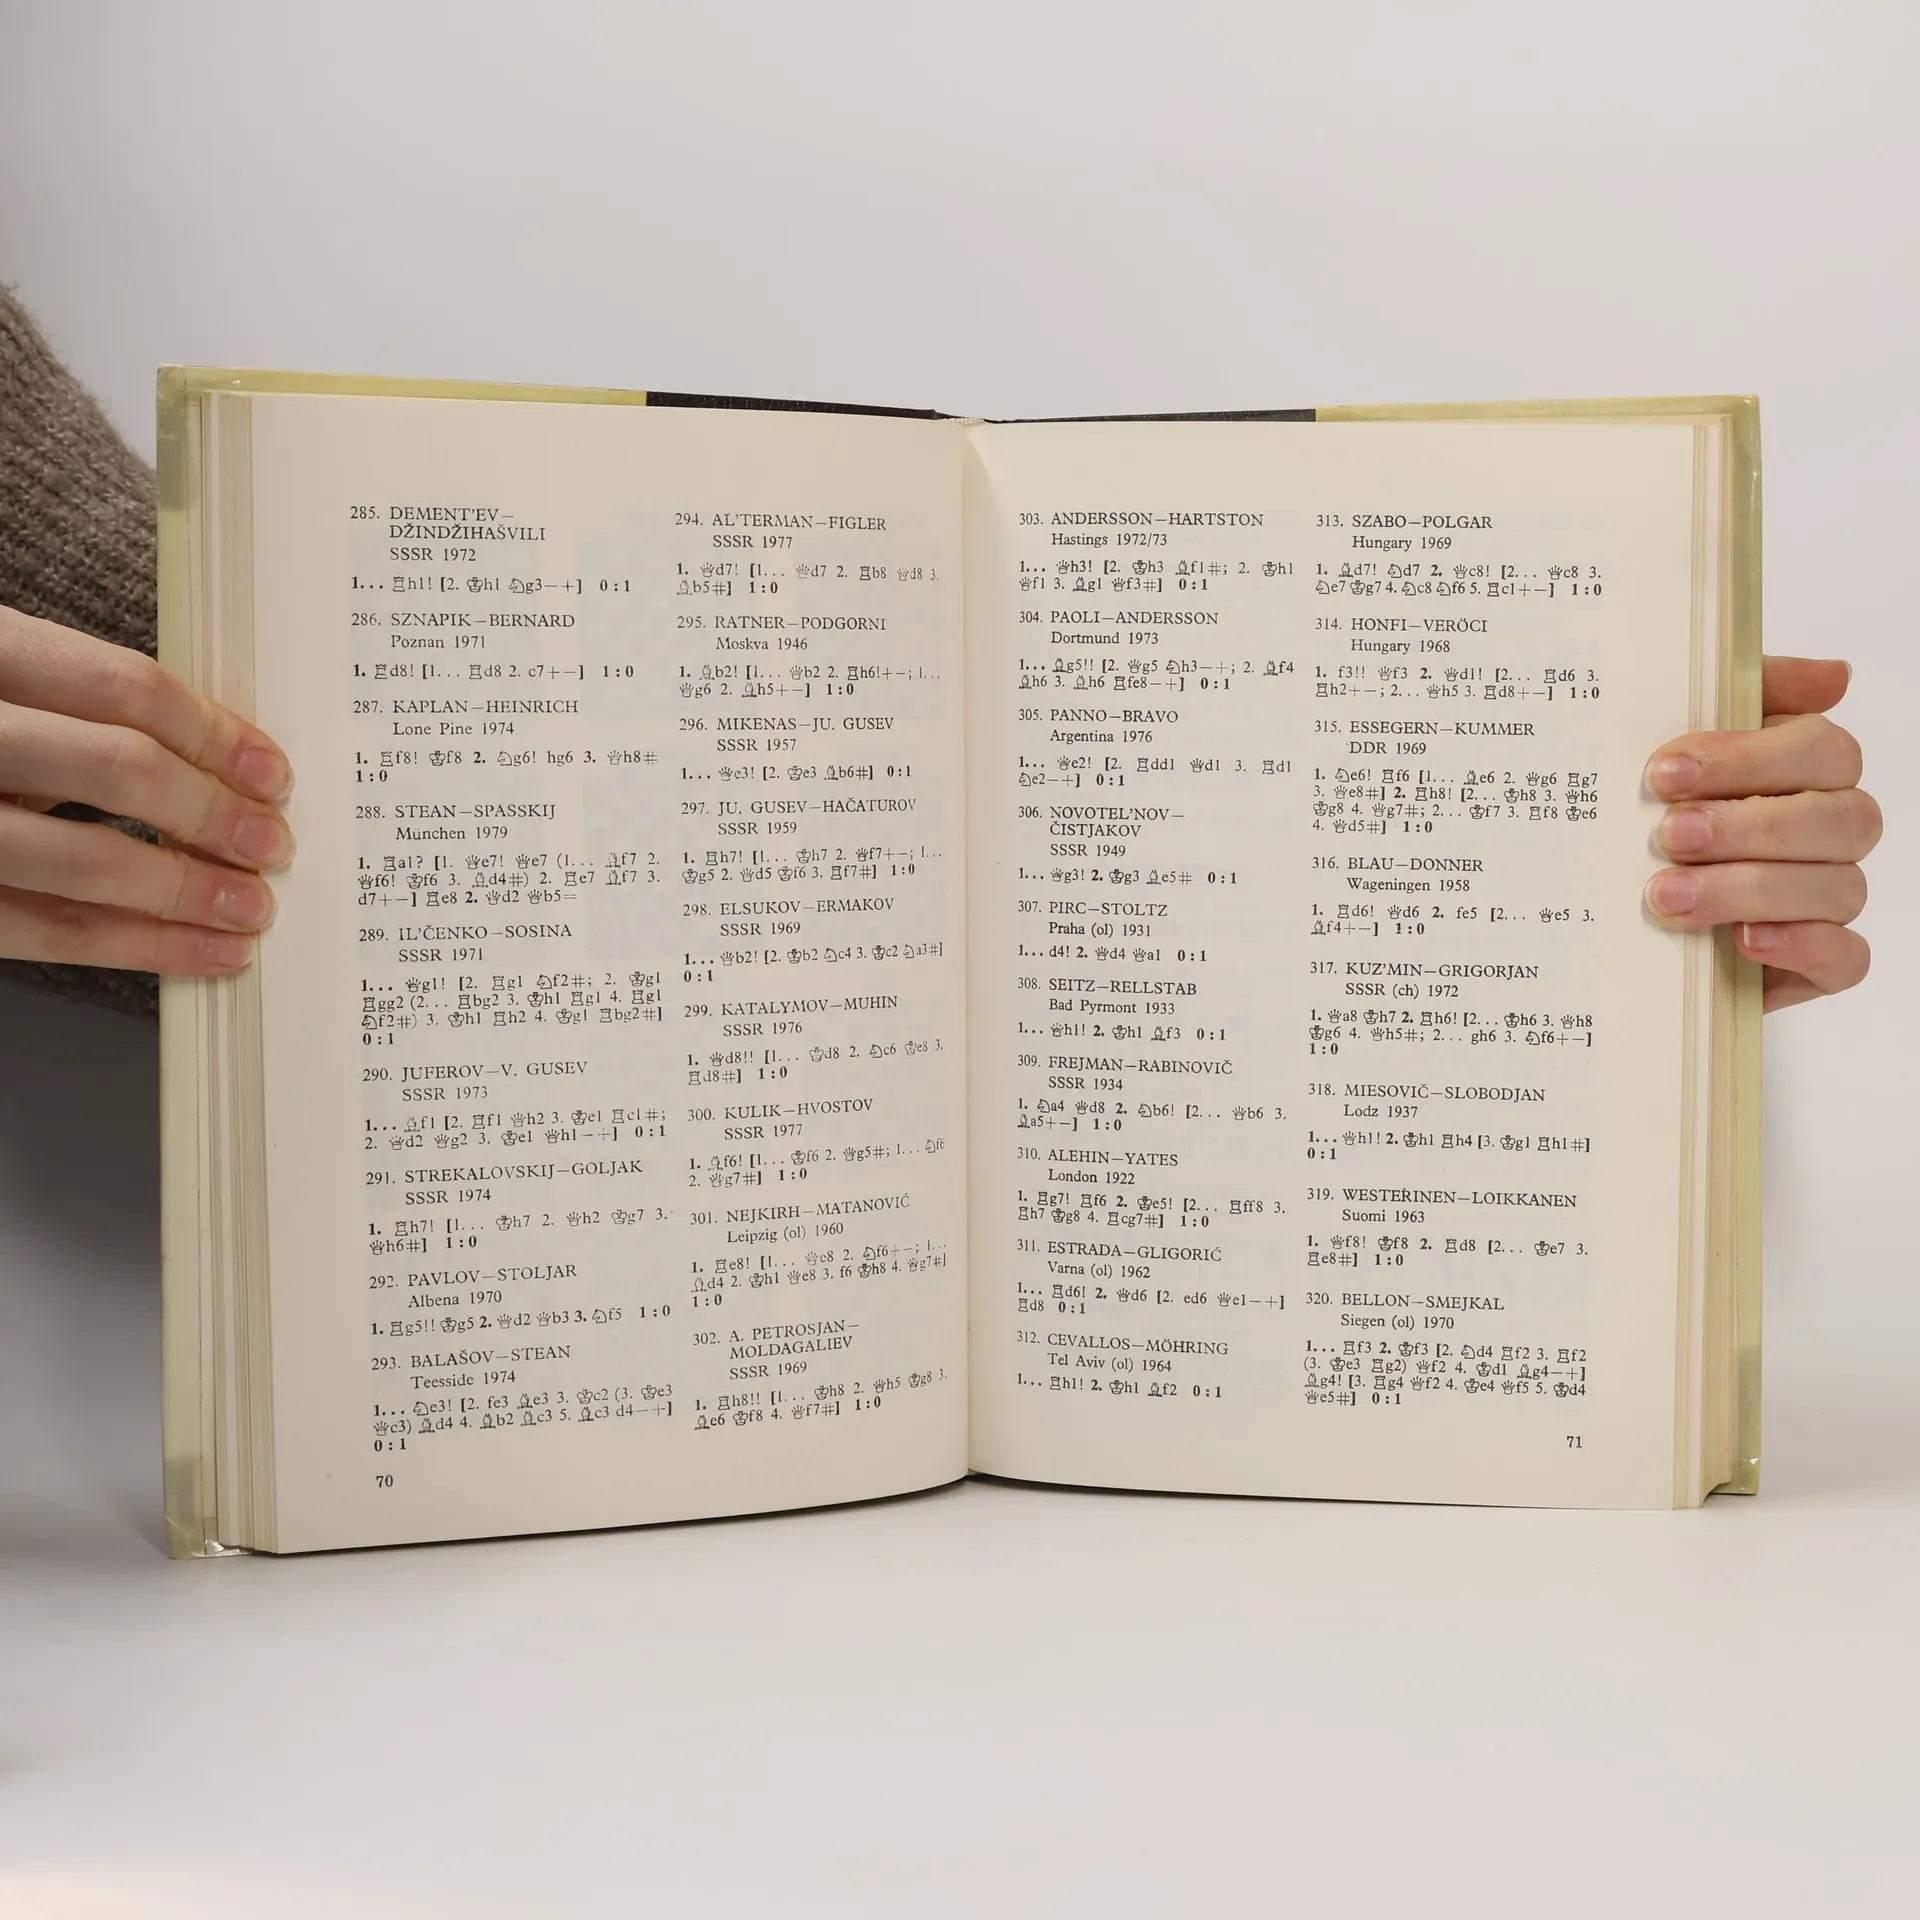 285. DEMENT'EV—
DŽINDŽIHAŠVILI
SSSR 1972
1... ♖h1! [2. ♔h1 ♘g3—+] 0:1
286. SZNAPIK—BERNARD
Poznan 1971
1. ♖d8! [1... ♖d8 2. c7+—] 1:0
287. KAPLAN—HEINRICH
Lone Pine 1974
1. ♖f8! ♔f8 2. ♘g6! hg6 3. ♕h8#
1:0
288. STEAN—SPASSKIJ
München 1979
1. ♖a1? [1. ♕e7! ♕e7 (1... ♗f7 2.
♕f6! ♔f6 3. ♗d4#) 2. ♖e7 ♗f7 3.
d7+—] ♖e8 2. ♕d2 ♕b5=
289. IL'ČENKO—SOSINA
SSSR 1971
1... ♕g1! [2. ♖g1 ♘f2#; 2. ♔g1
♖gg2 (2... ♖bg2 3. ♔h1 ♖g1 4. ♖g1
♘f2#) 3. ♔h1 ♖h2 4. ♔g1 ♖bg2#]
0:1
290. JUFEROV—V. GUSEV
SSSR 1973
1... ♗f1 [2. ♖f1 ♕h2 3. ♔e1 ♖c1#;
2. ♕d2 ♕g2 3. ♔e1 ♕h1—+] 0:1
291. STREKALOVSKIJ—GOLJAK
SSSR 1974
1. ♖h7! [1... ♔h7 2. ♕h2 ♔g7 3.
♕h6#] 1:0
292. PAVLOV—STOLJAR
Albena 1970
1. ♖g5!! ♔g5 2. ♕d2 ♕b3 3. ♘f5 1:0
293. BALAŠOV—STEAN
Teesside 1974
1... ♘e3! [2. fe3 ♗e3 3. ♔c2 (3. ♔e3
♕c3) ♗d4 4. ♗b2 ♗c3 5. ♗c3 d4—+]
0:1
70
294. AL'TERMAN—FIGLER
SSSR 1977
1. ♕d7! [1... ♕d7 2. ♖b8 ♕d8 3.
♗b5#] 1:0
295. RATNER—PODGORNI
Moskva 1946
1. ♗b2! [1... ♕b2 2. ♖h6!+—; 1...
♕g6 2. ♗h5+—] 1:0
296. MIKENAS—JU. GUSEV
SSSR 1957
1... ♕e3! [2. ♔e3 ♗b6#] 0:1
297. JU. GUSEV—HAČATUROV
SSSR 1959
1. ♖h7! [1... ♔h7 2. ♕f7+—; 1...
♔g5 2. ♕d5 ♔f6 3. ♖f7#] 1:0
298. ELSUKOV—ERMAKOV
SSSR 1969
1... ♕b2! [2. ♔b2 ♘c4 3. ♔c2 ♘a3#]
0:1
299. KATALYMOV—MUHIN
SSSR 1976
1. ♕d8!! [1... ♔d8 2. ♘c6 ♔e8 3.
♖d8#] 1:0
300. KULIK—HVOSTOV
SSSR 1977
1. ♗f6! [1... ♔f6 2. ♕g5#; 1... ♘f6
2. ♕g7#] 1:0
301. NEJKIRH—MATANOVIĆ
Leipzig (ol) 1960
1. ♖e8! [1... ♕e8 2. ♘f6+—; 1...
♗d4 2. ♔h1 ♕e8 3. f6 ♔h8 4. ♕g7#]
1:0
302. A. PETROSJAN—
MOLDAGALIEV
SSSR 1969
1. ♖h8!! [1... ♔h8 2. ♕h5 ♔g8 3.
♗e6 ♔f8 4. ♕f7#] 1:0
303. ANDERSSON—HARTSTON
Hastings 1972/73
1... ♕h3! [2. ♔h3 ♗f1#; 2. ♔h1
♕f1 3. ♗g1 ♕f3#] 0:1
304. PAOLI—ANDERSSON
Dortmund 1973
1... ♗g5!! [2. ♕g5 ♘h3—+; 2. ♗f4
♗h6 3. ♗h6 ♖fe8—+] 0:1
305. PANNO—BRAVO
Argentina 1976
1... ♕e2! [2. ♖dd1 ♕d1 3. ♖d1
♘e2—+] 0:1
306. NOVOTEL'NOV—
ČISTJAKOV
SSSR 1949
1... ♕g3! 2. ♔g3 ♗e5# 0:1
307. PIRC—STOLTZ
Praha (ol) 1931
1... d4! 2. ♕d4 ♕a1 0:1
308. SEITZ—RELLSTAB
Bad Pyrmont 1933
1... ♕h1! 2. ♔h1 ♗f3 0:1
309. FREJMAN—RABINOVIČ
SSSR 1934
1. ♘a4 ♕d8 2. ♘b6! [2... ♕b6 3.
♗a5+—] 1:0
310. ALEHIN—YATES
London 1922
1. ♖g7! ♖f6 2. ♔e5! [2... ♖ff8 3.
♖h7 ♔g8 4. ♖cg7#] 1:0
311. ESTRADA—GLIGORIĆ
Varna (ol) 1962
1... ♖d6! 2. ♕d6 [2. ed6 ♕e1—+]
♖d8 0:1
312. CEVALLOS—MÖHRING
Tel Aviv (ol) 1964
1... ♖h1! 2. ♔h1 ♗f2 0:1
313. SZABO—POLGAR
Hungary 1969
1. ♗d7! ♘d7 2. ♕c8! [2... ♕c8 3.
♘e7 ♔g7 4. ♘c8 ♘f6 5. ♖c1+—] 1:0
314. HONFI—VERÖCI
Hungary 1968
1. f3!! ♕f3 2. ♕d1! [2... ♖d6 3.
♖h2+—; 2... ♕h5 3. ♖d8+—] 1:0
315. ESSEGERN—KUMMER
DDR 1969
1. ♘e6! ♖f6 [1... ♗e6 2. ♕g6 ♖g7
3. ♕e8#] 2. ♖h8! [2... ♔h8 3. ♕h6
♔g8 4. ♕g7#; 2... ♔f7 3. ♖f8 ♔e6
4. ♕d5#] 1:0
316. BLAU—DONNER
Wageningen 1958
1. ♖d6! ♕d6 2. fe5 [2... ♕e5 3.
♗f4+—] 1:0
317. KUZ'MIN—GRIGORJAN
SSSR (ch) 1972
1. ♕a8 ♔h7 2. ♖h6! [2... ♔h6 3. ♕h8
♔g6 4. ♕h5#; 2... gh6 3. ♘f6+—]
1:0
318. MIESOVIČ—SLOBODJAN
Lodz 1937
1... ♕h1! 2. ♔h1 ♖h4 [3. ♔g1 ♖h1#]
0:1
319. WESTERINEN—LOIKKANEN
Suomi 1963
1. ♕f8! ♔f8 2. ♖d8 [2... ♔e7 3.
♖e8#] 1:0
320. BELLON—SMEJKAL
Siegen (ol) 1970
1... ♖f3 2. ♔f3 [2. ♘d4 ♖f2 3. ♖f2
(3. ♔e3 ♖g2) ♕f2 4. ♔d1 ♗g4—+]
♗g4! [3. ♖g4 ♕f2 4. ♔e4 ♕f5 5. ♔d4
♕e5#] 0:1
71